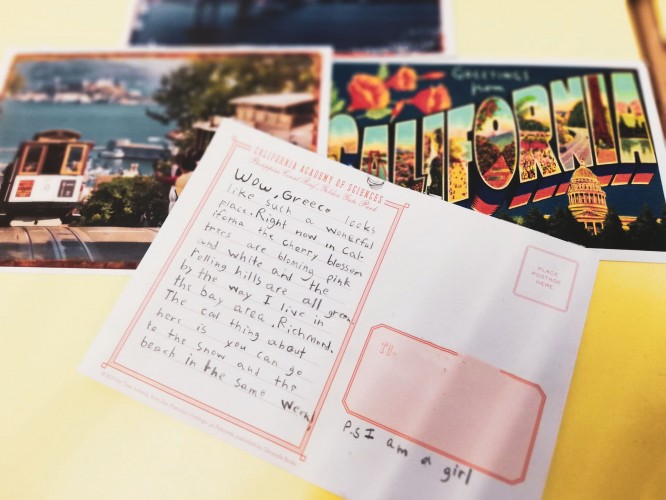 GREETINGS
from
CALIFORNIA
CALIFORNIA ACADEMY OF SCIENCES
Golden Gate Park
Wow, Greece looks
like such a wonerful
place. Right now in Cal-
ifornia the cherry blossom
trees are bloming pink
and white and the
rolling hills are all green
by the way I live in
the bay area, Richmond.
The cal thing about
here is you can go
to the snow and the
beach in the same week!
PLACE
POSTAGE
HERE
TO:
P.S I am a girl